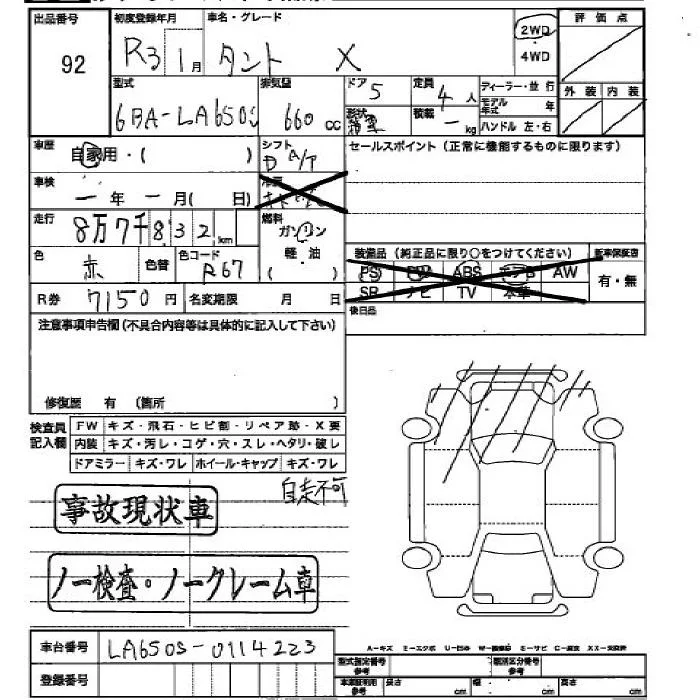 出品番号 初度登録年月 車名・グレード 2WD 評価点
92 R3 1月 タント X 4WD
型式 排気量 ドア 定員 ディーラー・並行 外装 内装
6BA-LA650S 660 cc 5 4人 モデル年式 年
形状 積載 - kg ハンドル 左・右
車歴 自家用・( ) シフト D A/T セールスポイント(正常に機能するものに限ります)
車検 -年 -月( 日) 冷房
走行 8万7千832km 燃料 ガソリン
軽油
( )
装備品(純正品に限り○をつけてください) 新車保証書
色 赤 色替 色コード R67
PS PW ABS エアB AW 有・無
SR ナビ TV 本革
R券 7150円 名変期限 月 日
後日品
注意事項申告欄(不具合内容等は具体的に記入して下さい)
修復歴 有 (箇所 )
検査員記入欄 FW キズ・飛石・ヒビ割・リペア跡・X要
内装 キズ・汚レ・コゲ・穴・スレ・ヘタリ・破レ
ドアミラー キズ・ワレ ホイール・キャップ キズ・ワレ
自走不可
事故現状車
ノー検査・ノークレーム車
A-キズ E-エクボ U-凹み W-補修跡 S-サビ C-腐食 XX-交換済
車台番号 LA650S-0114223
型式指定番号 参考 類別区分番号 参考
登録番号
車庫証明用 参考 長さ cm 幅 cm 高さ cm